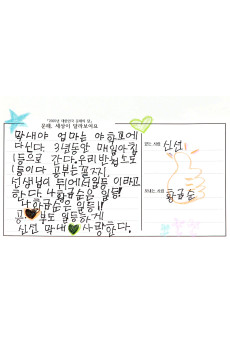 문해, 세상이 달라보여요
막내야 엄마는 야학교에
다닌다. 3년동안 매일아침
1등으로 간다. 우리반첨도
1등이다 공부는꼴찌.
선생님이 뒤에서일등 이라고
한다. 나황금순은 일등!
나황금순은 일등!!
공부도 일등하게
신선 막내 사랑한다.
받는 사람 신선
보내는 사람 황금순